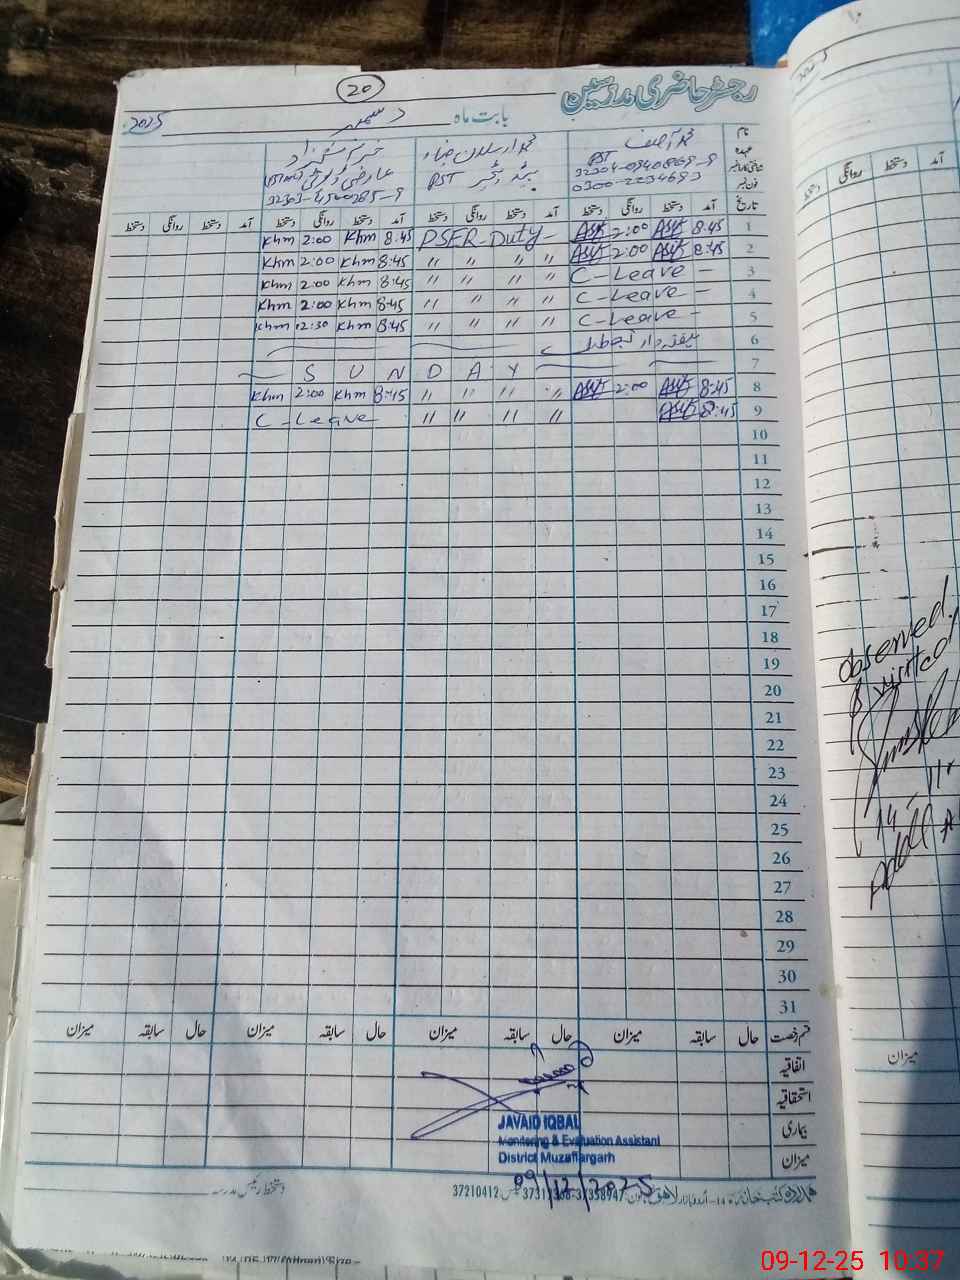 20
رجسٹر حاضری مدرسین
بابت ماہ دسمبر 2025
نام محمد آصف محمد ارسلان
عہدہ PST ہیڈ ٹیچر PST عارضی
32304-0940869-9 32303-4560285-9
فون نمبر 0300-2234693
تاریخ آمد دستخط روانگی دستخط آمد دستخط روانگی دستخط آمد دستخط روانگی دستخط آمد دستخط روانگی دستخط
1 8:45 Asif 2:00 Asif PSER-Duty- 8:45 Khm 2:00 Khm
2 8:45 Asif 2:00 Asif " " " " 8:45 Khm 2:00 Khm
3 C-Leave - " " " " 8:45 Khm 2:00 Khm
4 C-Leave - " " " " 8:45 Khm 2:00 Khm
5 C-Leave - " " " " 8:45 Khm 12:30 Khm
6 ہفتہ وار تعطیل
7 SUNDAY
8 8:45 Asif 2:00 Asif " " " " 8:45 Khm 2:00 Khm
9 8:45 Asif " " " " C-Leave
10
11
12
13
14
15
16
17
18
19
20
21
22
23
24
25
26
27
28
29
30
31
قسم رخصت حال سابقہ میزان حال سابقہ میزان حال سابقہ میزان حال سابقہ میزان
اتفاقیہ
استحقاقیہ
بیماری
میزان
JAVAID IQBAL
Monitoring & Evaluation Assistant
District Muzaffargarh
09/12/2025
اردو بازار لاہور 37358947 37210412
دستخط رئیس مدرسہ
آمد دستخط روانگی دستخط
observed
& visited
14
Addl A
میزان
09-12-25 10:37